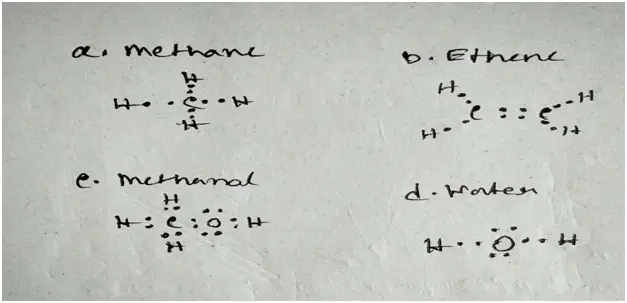 a. Methane
H
H : C : H
H
b. Ethene
H
C :: C : H
H : H
c. Methanal
H
H : C : O : H
H
d. Water
H : O : H